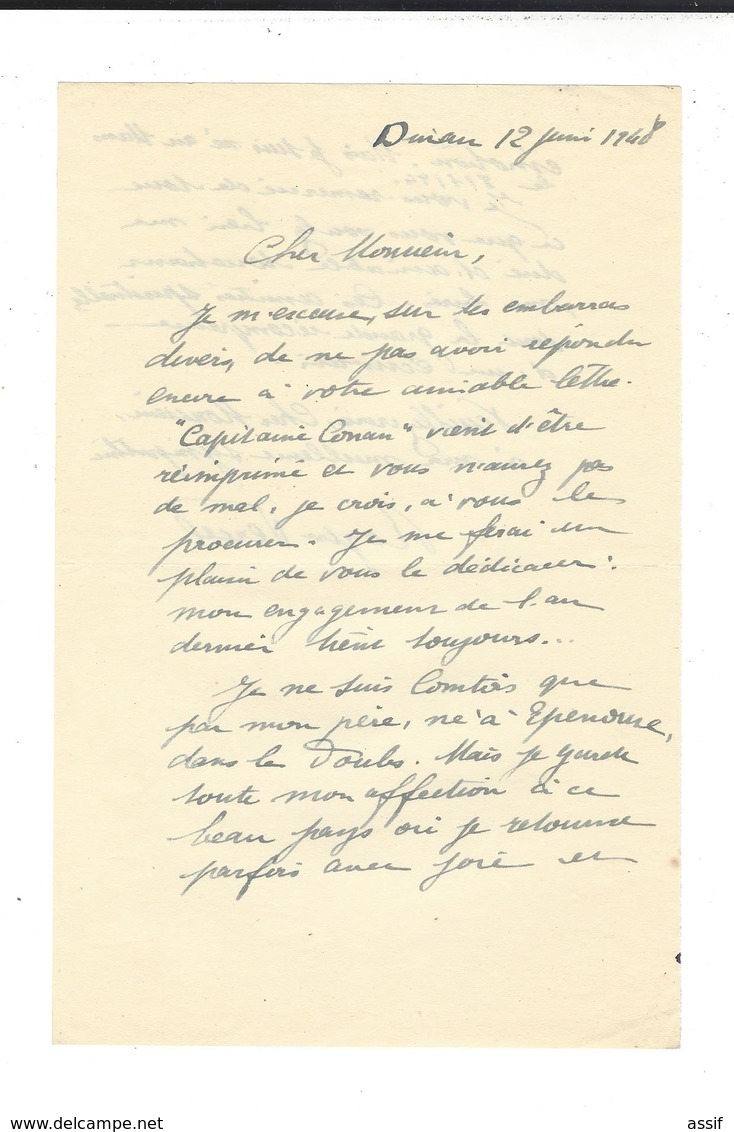 Dinan 12 juin 1948
Cher Monsieur,
Je m'excuse, sur les embarras
divers, de ne pas avoir répondu
encore à votre aimable lettre.
"Capitaine Conan" vient d'être
réimprimé et vous n'aurez pas
de mal, je crois, à vous le
procurer. Je me ferai un
plaisir de vous le dédicacer :
mon engagement de l'an
dernier tient toujours...
Je ne suis Comtois que
par mon père, né à Epenouse,
dans le Doubs. Mais je garde
toute mon affection à ce
beau pays où je retourne
parfois avec joie et
assif